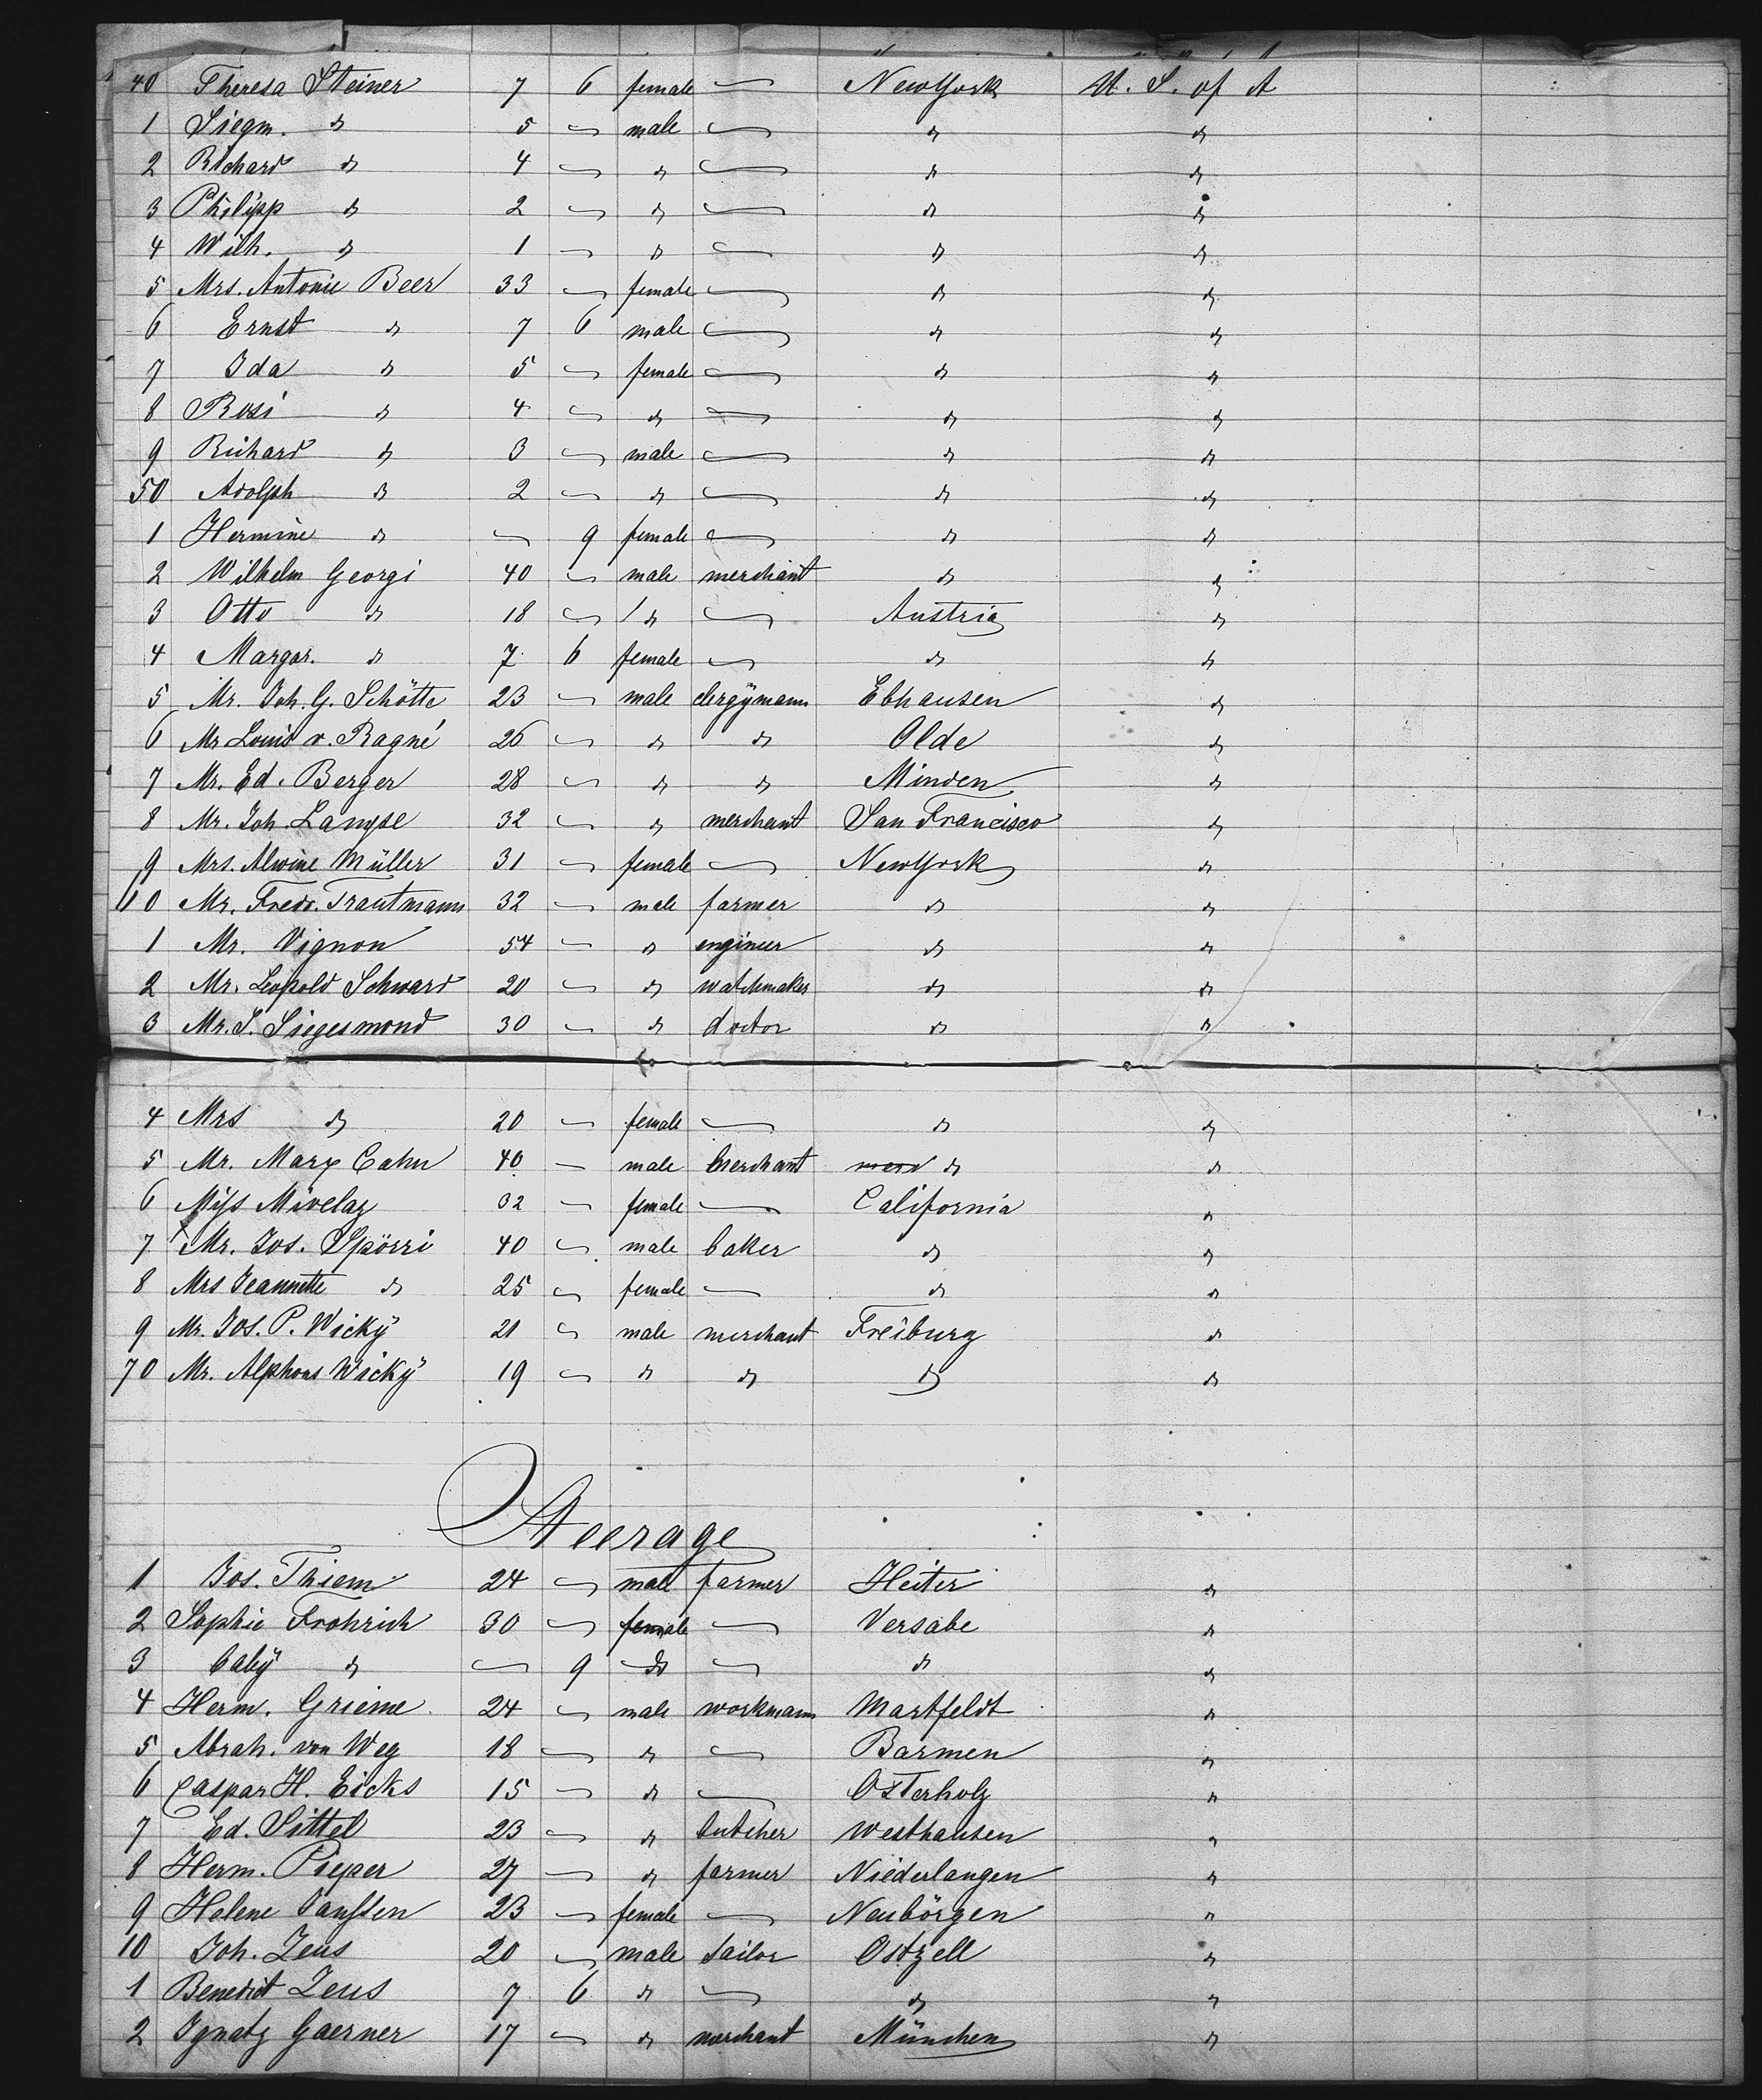 40 Theresa Steiner 7 6 female — New York U. S. of A
1 Siegm. do 5 — male — do do
2 Richard do 4 — do — do do
3 Philipp do 2 — do — do do
4 Wilh. do 1 — do — do do
5 Mrs. Antonie Beer 33 — female — do do
6 Ernst do 7 6 male — do do
7 Ida do 5 — female — do do
8 Rosi do 4 — do — do do
9 Richard do 3 — male — do do
50 Adolph do 2 — do — do do
1 Hermine do — 9 female — do do
2 Wilhelm Georgi 40 — male merchant do do
3 Otto do 18 — do — Austria do
4 Margar. do 7 6 female — do do
5 Mr. Joh. G. Schötte 23 — male clergÿmann Ebhausen do
6 Mr Louis v. Ragné 26 — do do Olde do
7 Mr. Ed. Berger 28 — do do Minden do
8 Mr. Joh. Lampe 32 — do merchant San Francisco do
9 Mrs. Alwine Müller 31 — female — New York do
60 Mr. Fredr. Trautmann 32 — male farmer do do
1 Mr. Vignon 54 — do engineer do do
2 Mr. Leopold Schward 20 — do watchmaker do do
3 Mr. S. Siegesmond 30 — do doctor do do
4 Mrs do 20 — female — do do
5 Mr. Marx Cahn 40 — male merchant do do
6 Miss Mivelaz 32 — female — California do
7 Mr. Jos. Spörri 40 — male baker do do
8 Mrs Jeannette do 25 — female — do do
9 Mr. Jos. P. Wickÿ 21 — male merchant Freiburg do
70 Mr. Alphons Wickÿ 19 — do do do do
Steerage
1 Jos. Thiem 24 — male farmer Heiter do
2 Sophie Frohrich 30 — female — Versabe do
3 babÿ do — 9 do — do do
4 Herm. Grieme 24 — male workmann Martfeldt do
5 Abrah. von Weg 18 — do — Barmen do
6 Caspar H. Eicks 15 — do — Osterholz do
7 Ed. Sittel 23 — do butcher Westhausen do
8 Herm. Pieper 27 — do farmer Niederlangen do
9 Helene Janssen 23 — female — Neubörgen do
10 Joh. Zeus 20 — male tailor Ostzell do
1 Benedict Zeus 7 6 do — do do
2 Ignatz Gaerner 17 — do merchant München do